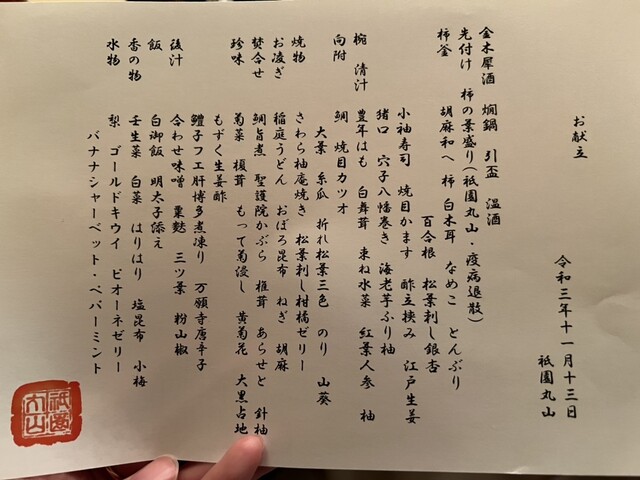 お献立
令和三年十一月十三日
祇園丸山
金木犀酒 燗鍋 引盃 温酒
先付け 柿の葉盛り(祇園丸山・疫病退散)
柿釜 胡麻和へ 柿 白木耳 なめこ とんぶり
百合根 松葉刺し銀杏
小袖寿司 焼目かます 酢立挟み 江戸生姜
猪口 穴子八幡巻き 海老芋ふり柚
椀 清汁 豊年はも 白舞茸 束ね水菜 紅葉人参 柚
向附 鯛 焼目カツオ
大葉 糸瓜 折れ松葉三色 のり 山葵
焼物 さわら柚庵焼き 松葉刺し柑橘ゼリー
お凌ぎ 稲庭うどん おぼろ昆布 ねぎ 胡麻
焚合せ 鯛旨煮 聖護院かぶら 椎茸 あらせと 針柚
珍味 菊菜 榎茸 もって菊浸し 黄菊花 大黒占地
もずく生姜酢
鱧子フエ肝博多煮凍り 万願寺唐辛子
後汁 合わせ味噌 粟麩 三ツ葉 粉山椒
飯 白御飯 明太子添え
香の物 壬生菜 白菜 はりはり 塩昆布 小梅
水物 梨 ゴールドキウイ ピオーネゼリー
バナナシャーベット・ペパーミント
祇園丸山